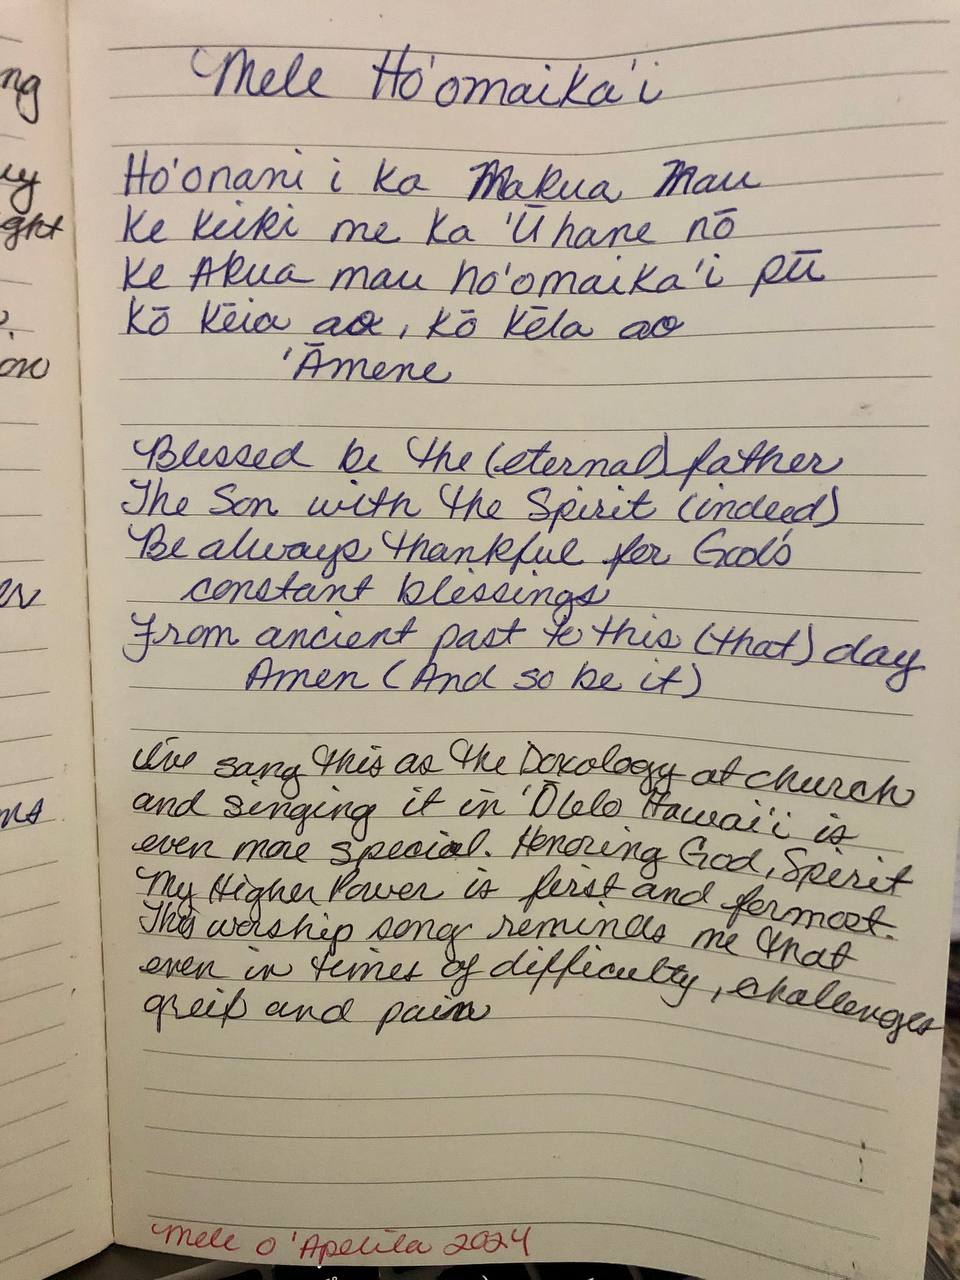 Mele Ho'omaika'i
Ho'onani i ka Makua Mau
Ke Keiki me ka 'Ūhane nō
Ke Akua mau ho'omaika'i pū
Kō kēia ao, kō kēla ao
'Āmene
Blessed be the (eternal) father
The Son with the Spirit (indeed)
Be always thankful for God's
constant blessings
From ancient past to this (that) day
Amen (And so be it)
I've sang this as the Doxology at church
and singing it in 'Ōlelo Hawai'i is
even more special. Honoring God, Spirit
My Higher Power is first and formost.
This worship song reminds me that
even in times of difficulty, challenges
greif and pain
Mele o 'Apelila 2024
ng
uy
ght
on
er